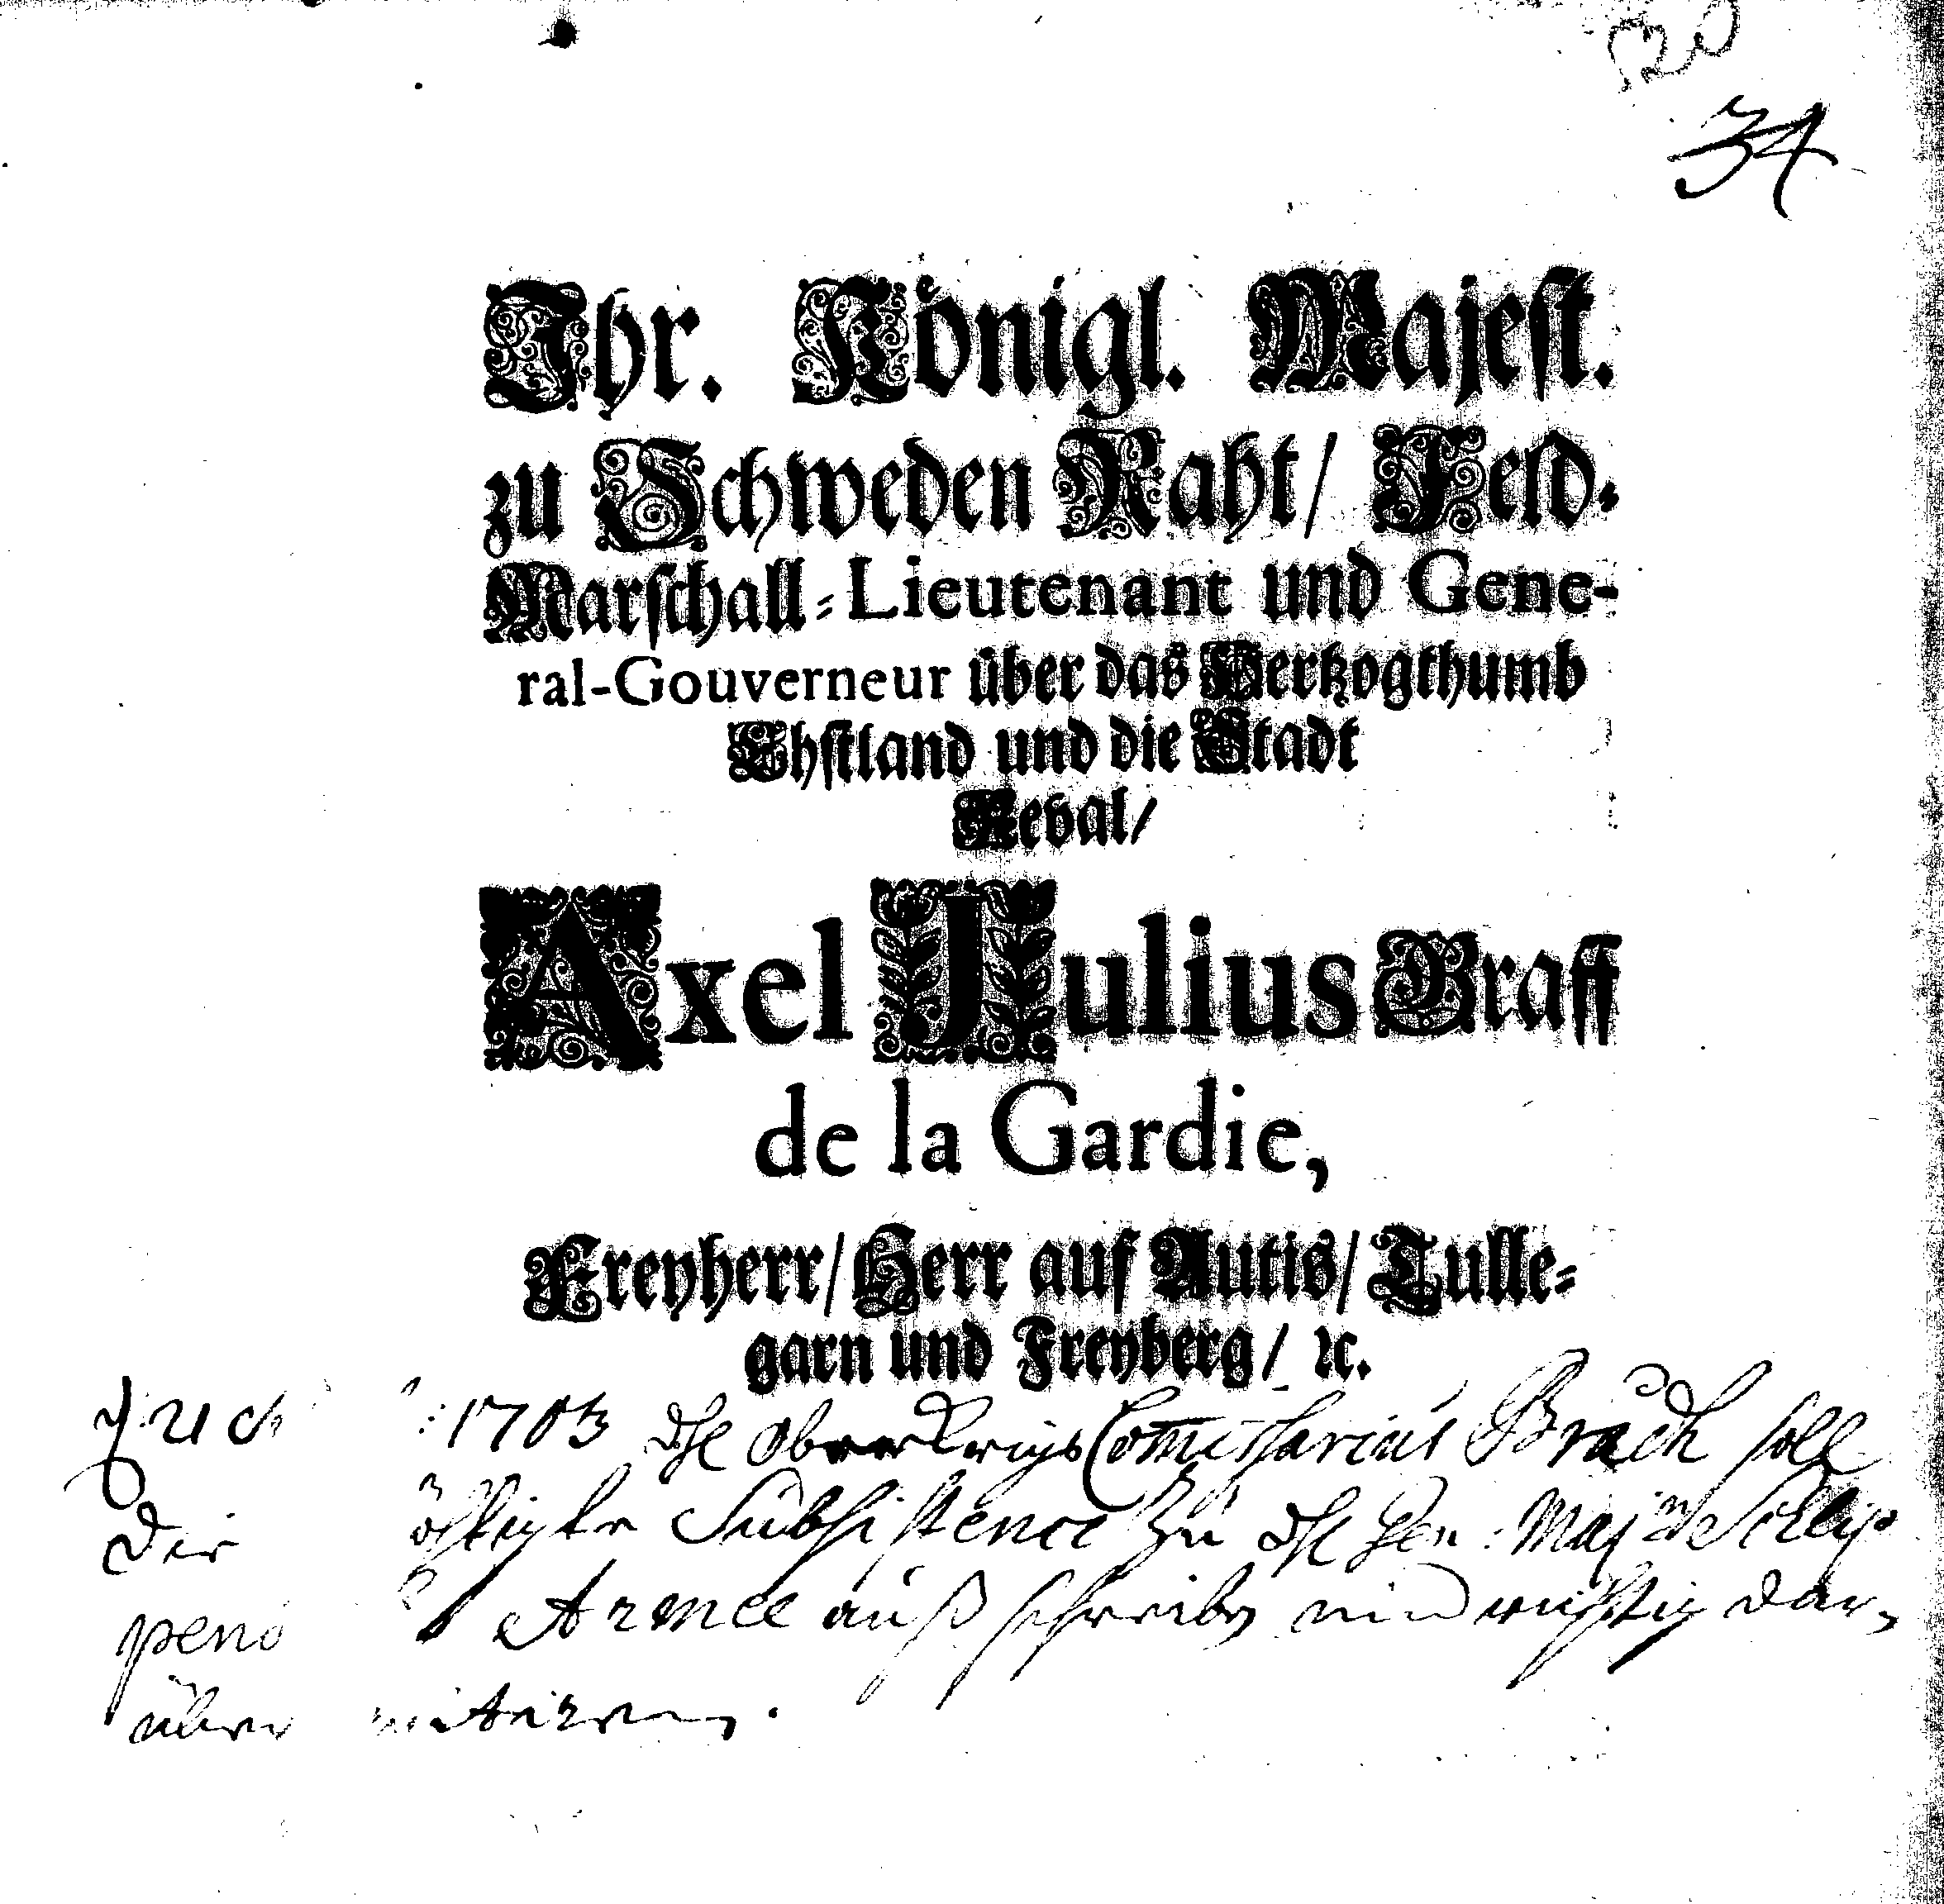 34
Ihr. Königl. Majest.
zu Schweden Raht/ Feld-
Marschall-Lieutenant und Gene-
ral-Gouverneur über das Hertzogthumb
Ehstland und die Stadt
Reval/
Axel Julius Graff
de la Gardie,
Freyherr/ Herr auf Autis/ Tulle-
garn und Freyberg/ ꝛc.
1703 Ober Kriegs Commissarius Brack soll
die Subsistence zu Gen: Maj
Armee auß schreiben und richtig dar-
über